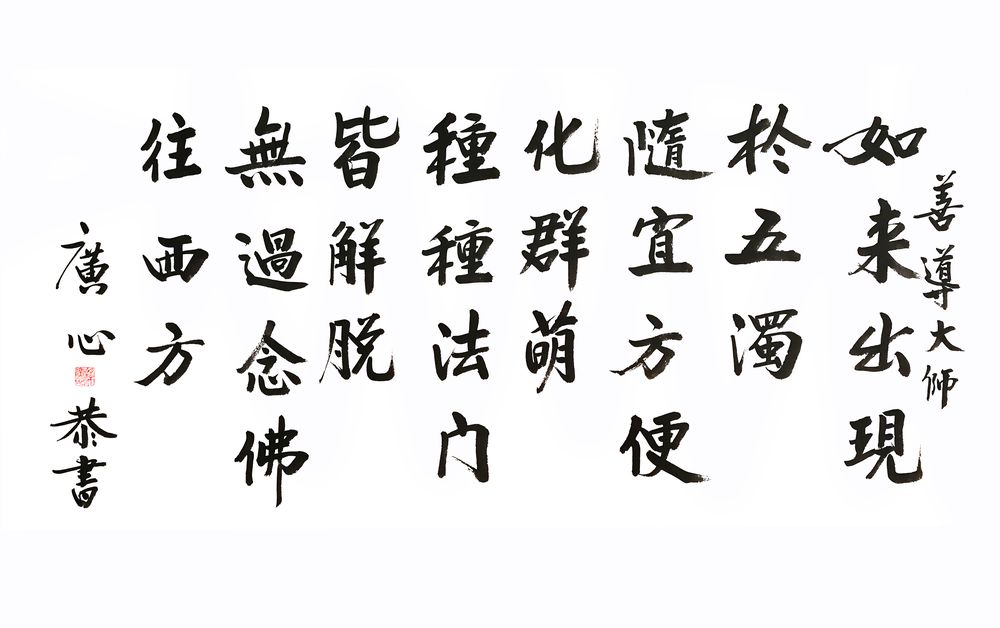 善導大师
如来出現
於五濁
隨宜方便
化群萌
種種法门
皆解脱
無過念佛
往西方
廣心
恭書